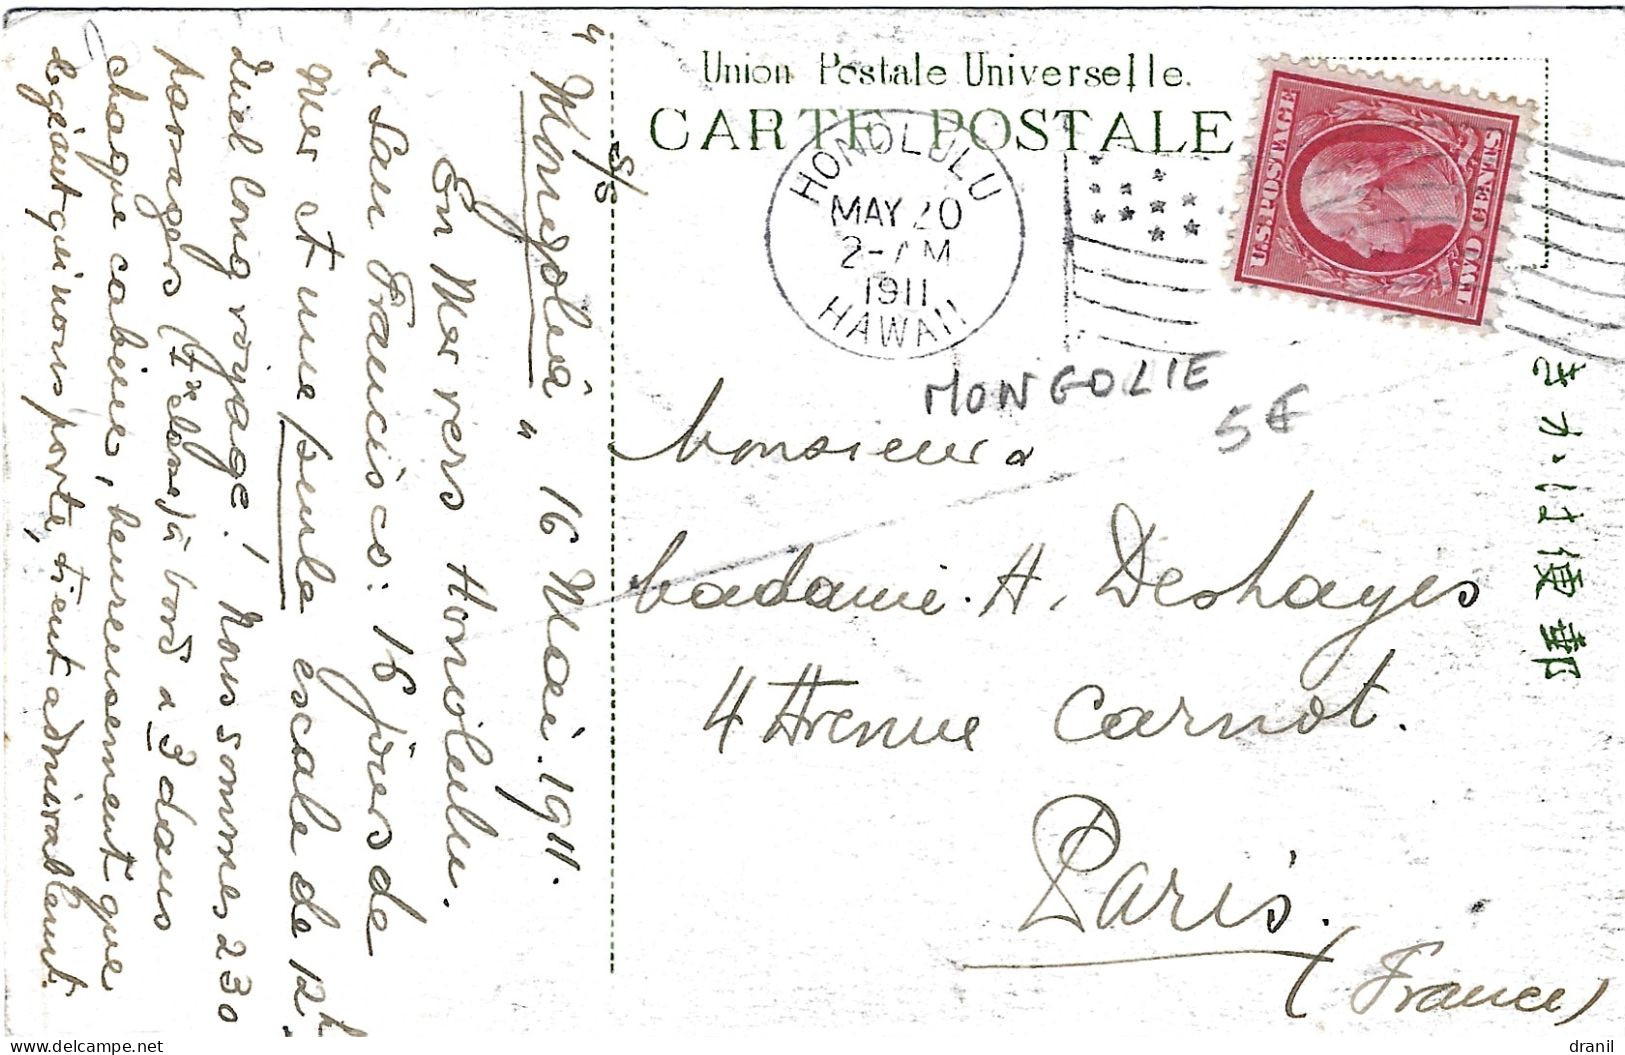 Union Postale Universelle.
CARTE POSTALE
HONOLULU
MAY 20
2-AM
1911
HAWAII
U.S. POSTAGE
TWO CENTS
MONGOLIE
5€
きかは便郵
Monsieur &
Madame A. Deshayes
4 Avenue Carnot.
Paris.
(France)
S/S
" Mongolia " 16 Mai. 1911.
En Mer vers Honolulu.
& San Francisco: 16 jours de
Mer et une seule escale de 12h.
Quel long voyage! Nous sommes 230
passagers à bord & 3 dans
chaque cabine, heureusement que
le géant qui nous porte, tient admirablement.
dranil